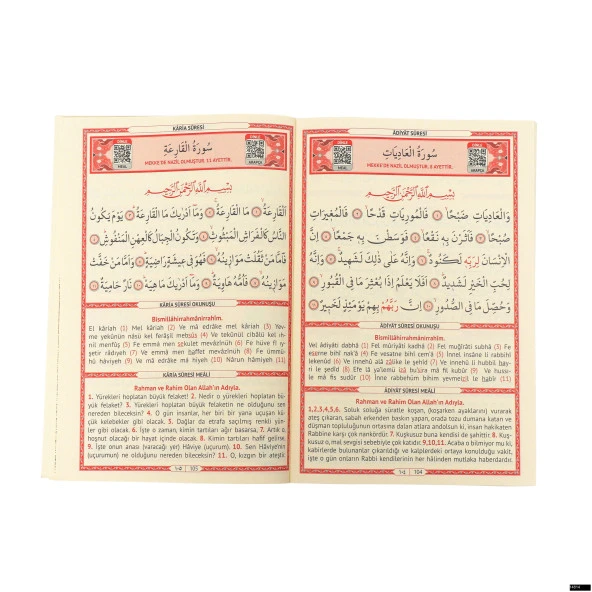 ÂDİYÂT SÛRESİ
DİNLE
MEAL
سُورَةُ الْعَادِيَاتِ
MEKKE'DE NAZİL OLMUŞTUR. 8 AYETTİR.
DİNLE
ARAPÇA
بِسْمِ اللّٰهِ الرَّحْمٰنِ الرَّحِيمِ
وَالْعَادِيَاتِ ضَبْحًاۙ ﴿١﴾ فَالْمُورِيَاتِ قَدْحًاۙ ﴿٢﴾ فَالْمُغِيرَاتِ
صُبْحًاۙ ﴿٣﴾ فَاَثَرْنَ بِهِ نَقْعًاۙ ﴿٤﴾ فَوَسَطْنَ بِهِ جَمْعًاۙ ﴿٥﴾ اِنَّ
الْاِنْسَانَ لِرَبِّهِ لَكَنُودٌۚ ﴿٦﴾ وَاِنَّهُ عَلٰى ذٰلِكَ لَشَهِيدٌۚ ﴿٧﴾ وَاِنَّهُ
لِحُبِّ الْخَيْرِ لَشَدِيدٌۜ ﴿٨﴾ اَفَلَا يَعْلَمُ اِذَا بُعْثِرَ مَا فِى الْقُبُورِۙ ﴿٩﴾
وَحُصِّلَ مَا فِى الصُّدُورِۙ ﴿١٠﴾ اِنَّ رَبَّهُمْ بِهِمْ يَوْمَئِذٍ لَخَبِيرٌ ﴿١١﴾
ÂDİYÂT SÛRESİ OKUNUŞU
Bismillâhirrahmânirrahîm.
Vel âdiyâti dabhâ (1) Fel mûriyâti kadhâ (2) Fel muğîrâti subhâ (3) Fe
eserne bihî nak'â (4) Fe vesatne bihî cem'â (5) İnnel insâne li rabbihî
lekenûd (6) Ve innehû alâ zâlike le şehîd (7) Ve innehû li hubbil hay-
ri le şedîd (8) Efe lâ ya'lemü izâ bu'sira mâ fil kubûr (9) Ve hussi-
le mâ fis sudûr (10) İnne rabbehüm bihim yevmeizi le habîr (11)
ÂDİYÂT SÛRESİ MEÂLİ
Rahman ve Rahim Olan Allah'ın Adıyla.
1,2,3,4,5,6. Soluk soluğa süratle koşan, (koşarken ayaklarını) vurarak
ateş çıkaran, sabah erkenden baskın yapan, orada tozu dumana katan ve
düşman topluluğunun ortasına dalan atlara andolsun ki, insan hakikaten
Rabbine karşı çok nankördür. 7. Kuşkusuz buna kendisi de şahittir. 8. Kuş-
kusuz o, mal sevgisi sebebiyle çok katıdır. 9,10,11. Acaba o bilmiyor mu ki,
kabirlerde bulunanlar çıkarıldığı ve kalplerdeki ortaya konulduğu vakit,
işte o gün onların Rabbi kendilerinin her hâlinden mutlaka haberdardır.
١٠٤ 104
KÂRİA SÛRESİ
DİNLE
MEAL
سُورَةُ الْقَارِعَةِ
MEKKE'DE NAZİL OLMUŞTUR. 11 AYETTİR.
DİNLE
ARAPÇA
بِسْمِ اللّٰهِ الرَّحْمٰنِ الرَّحِيمِ
اَلْقَارِعَةُۙ ﴿١﴾ مَا الْقَارِعَةُۚ ﴿٢﴾ وَمَٓا اَدْرٰيكَ مَا الْقَارِعَةُۜ ﴿٣﴾ يَوْمَ يَكُونُ
النَّاسُ كَالْفَرَاشِ الْمَبْثُوثِۙ ﴿٤﴾ وَتَكُونُ الْجِبَالُ كَالْعِهْنِ الْمَنْفُوشِۜ ﴿٥﴾
فَاَمَّا مَنْ ثَقُلَتْ مَوَازِينُهُۙ ﴿٦﴾ فَهُوَ فِى عِيشَةٍ رَاضِيَةٍۜ ﴿٧﴾ وَاَمَّا مَنْ خَفَّتْ
مَوَازِينُهُۙ ﴿٨﴾ فَاُمُّهُ هَاوِيَةٌۜ ﴿٩﴾ وَمَٓا اَدْرٰيكَ مَا هِيَهْۜ ﴿١٠﴾ نَارٌ حَامِيَةٌ ﴿١١﴾
KÂRİA SÛRESİ OKUNUŞU
Bismillâhirrahmânirrahîm.
El kâriah (1) Mel kâriah (2) Ve mâ edrâke mel kâriah (3) Yev-
me yekûnün nâsü kel ferâşil mebsûs (4) Ve tekûnül cibâlü kel ıh-
nil menfûş (5) Fe emmâ men sekulet mevâzînüh (6) Fe hüve fî ıy-
şetir râdıyeh (7) Ve emmâ men haffet mevâzînüh (8) Fe ümmü-
hû hâviyeh (9) Ve mâ edrâke mâ hiyeh (10) Nârun hâmiyeh (11)
KÂRİA SÛRESİ MEÂLİ
Rahman ve Rahim Olan Allah'ın Adıyla.
1. Yürekleri hoplatan büyük felaket! 2. Nedir o yürekleri hoplatan bü-
yük felaket? 3. Yürekleri hoplatan büyük felaketin ne olduğunu sen
nereden bileceksin? 4. O gün insanlar, her biri bir yana uçuşan kü-
çük kelebekler gibi olacak. 5. Dağlar da etrafa saçılmış renkli yün-
ler gibi olacak. 6. İşte o zaman, kimin tartıları ağır basarsa, 7. Artık o,
hoşnut olacağı bir hayat içinde olacak. 8. Kimin tartıları hafif gelirse,
9. İşte onun anası (varacağı yer) Hâviye'dir. 10. Sen Hâviye'nin
(uçurumun) ne olduğunu nereden bileceksin? 11. O, kızgın bir ateştir.
١٠٥ 105